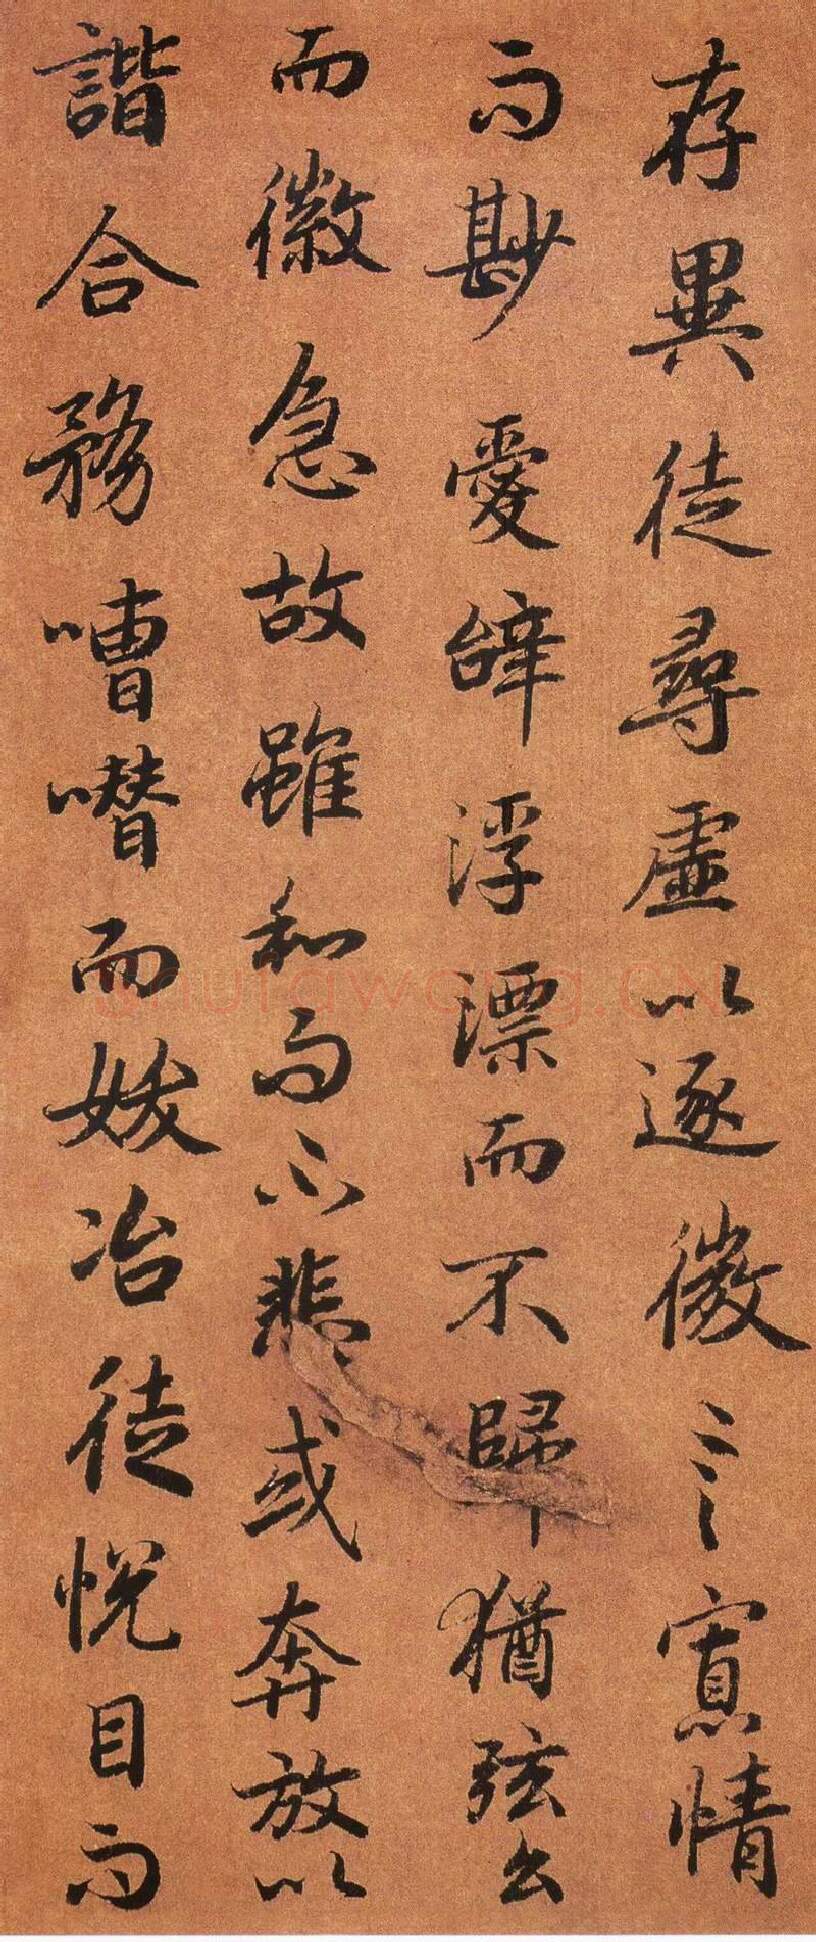 存異徒尋虛以逐微言寡情
而尠愛辝浮漂而不歸猶弦么
而徽急故雖和而不悲或奔放以
諧合務嘈噆而妖冶徒悅目而
shufawang.CN